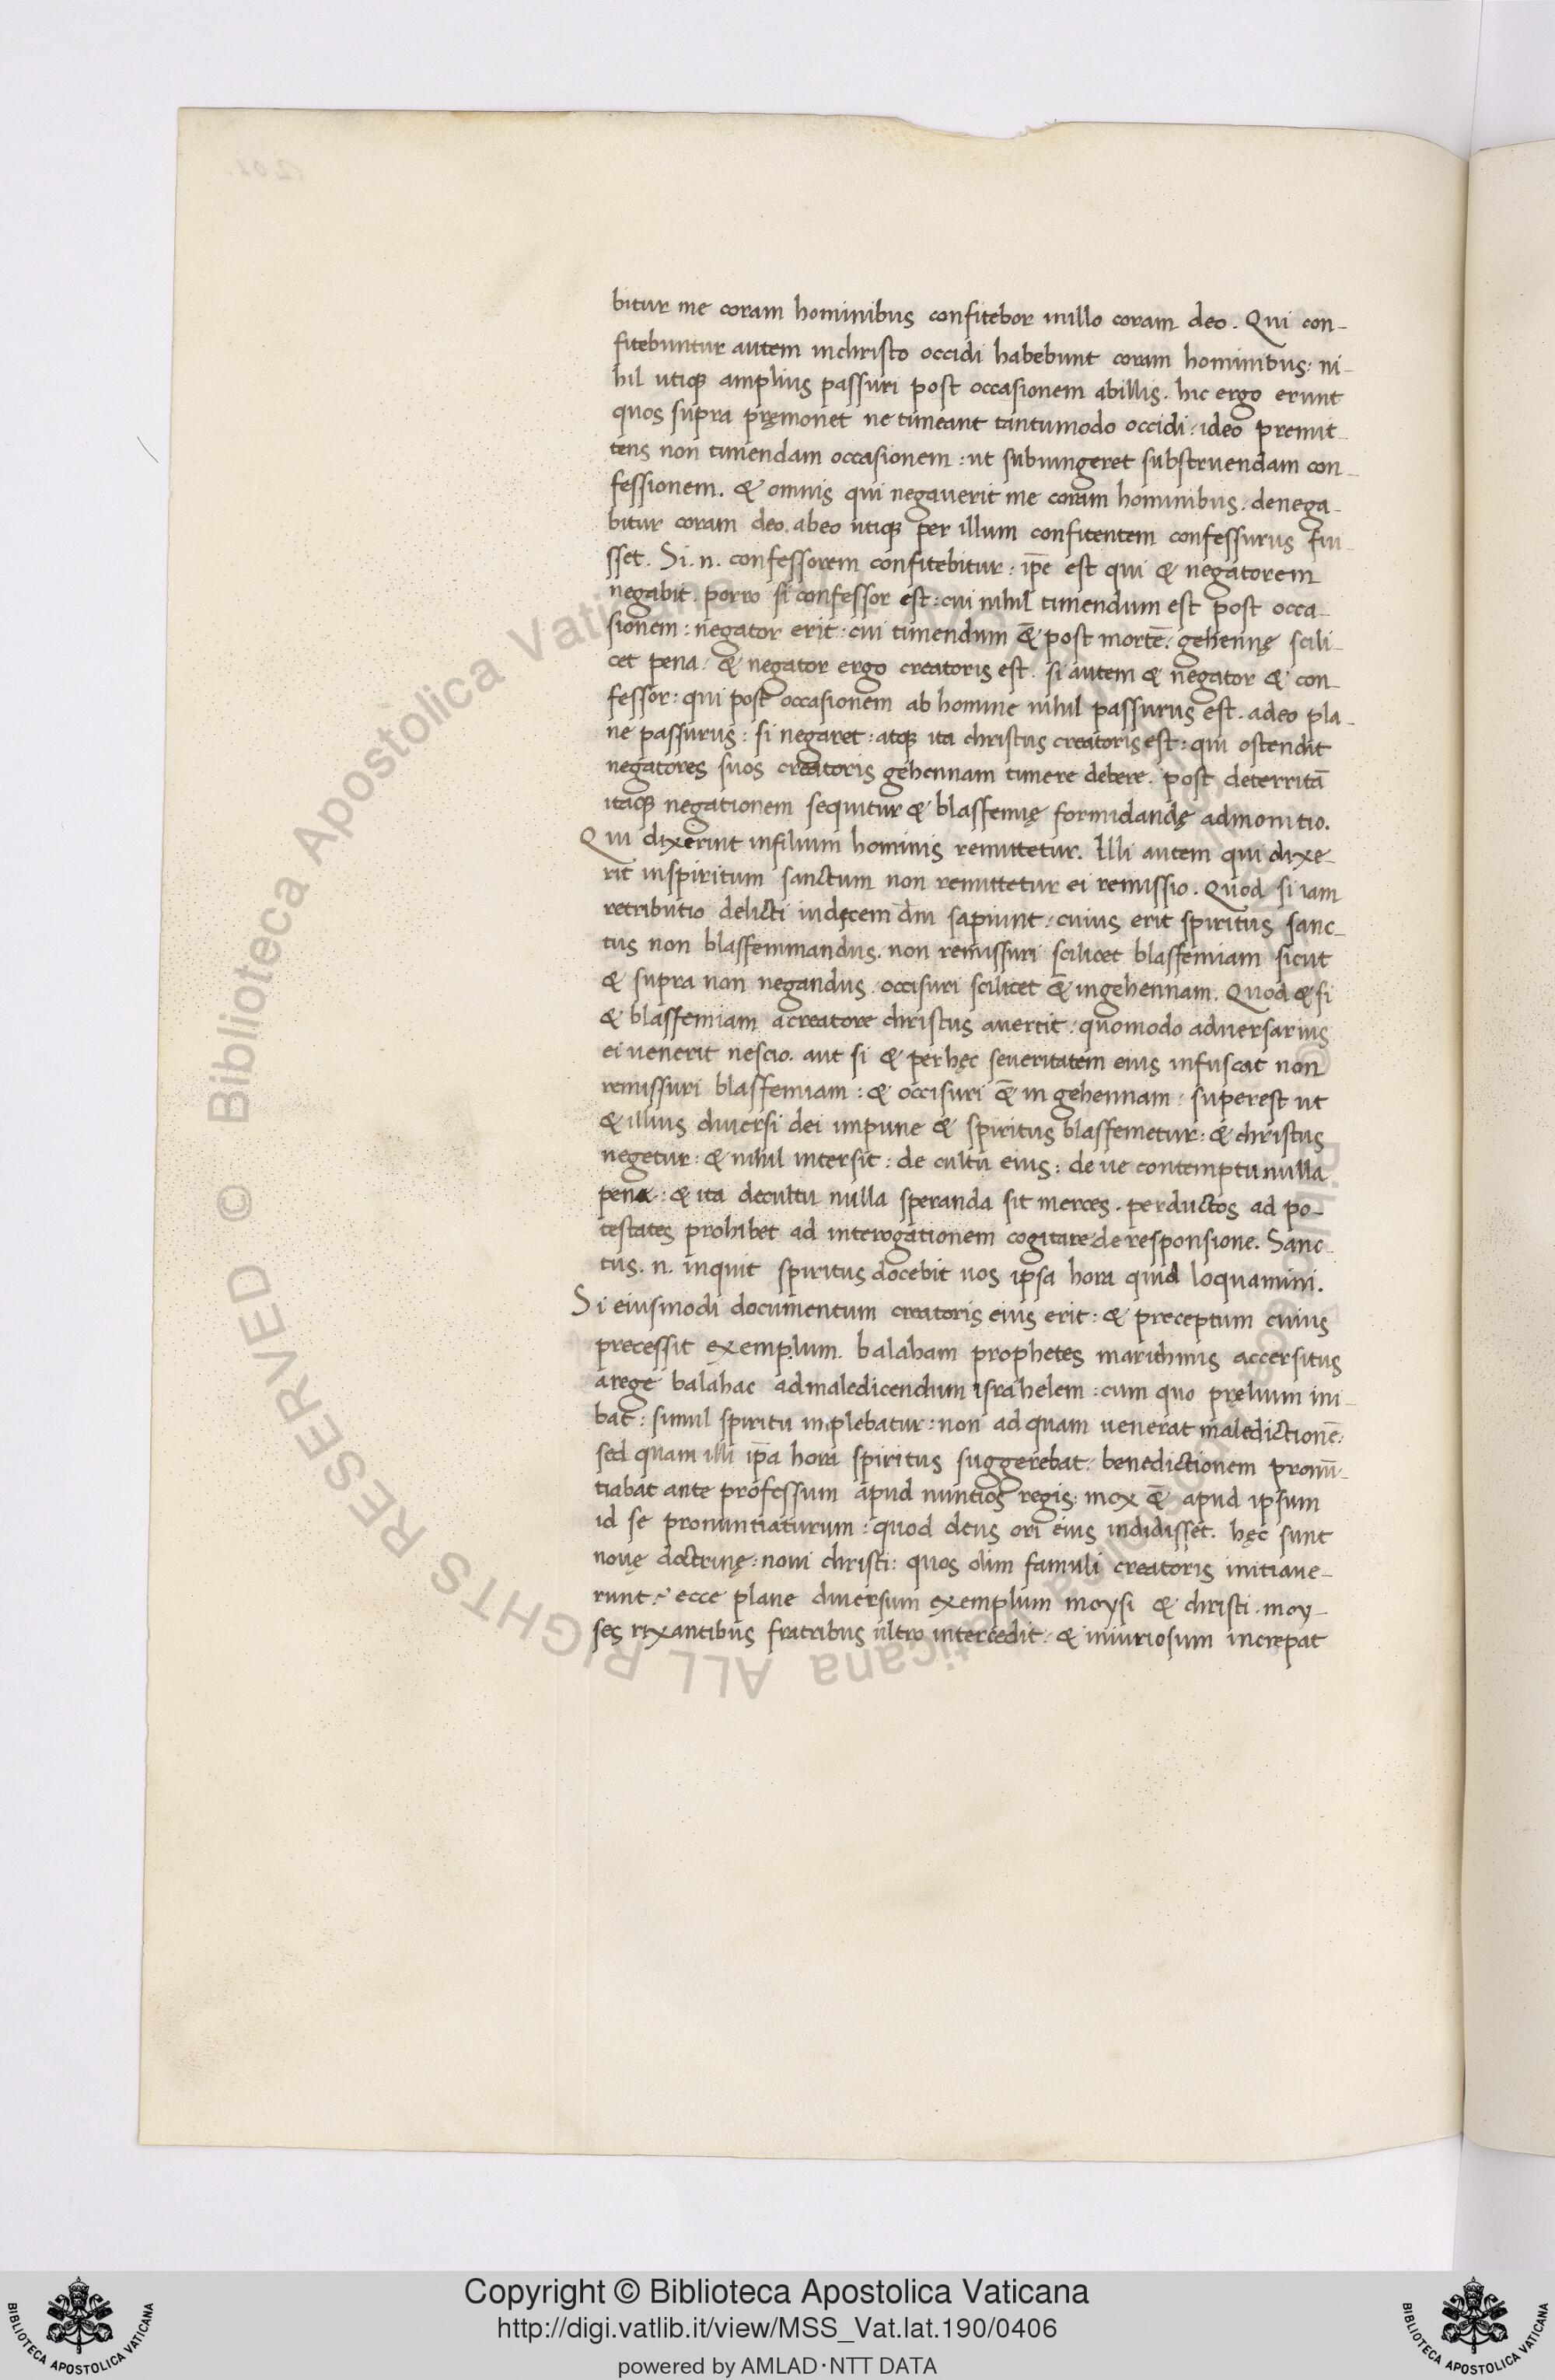 bitur me coram hominibus confitebor inillo coram deo. Qui con-
fitebuntur autem inchristo occidi habebunt coram hominibus: ni-
hil utiqꝫ amplius passuri post occasionem abillis. hic ergo erunt
quos supra pręmonet ne timeant tantumodo occidi: ideo premit-
tens non timendam occasionem: ut subiungeret substruendam con-
fessionem. & omnis qui negauerit me coram hominibus. denega-
bitur coram deo. abeo utiqꝫ per illum confitentem confessurus fui-
sset. Si .n. confessorem confitebitur: ip̄e est qui & negatorem
negabit. porro si confessor est: cui nihil timendum est post occa-
sionem: negator erit: cui timendum &̄ post mortē. gehennę scili-
cet pena: & negator ergo creatoris est. si autem & negator & con-
fessor: qui post occasionem ab homine nihil passurus est. adeo pla-
ne passurus: si negaret: atqꝫ ita christus creatoris est: qui ostendit
negatores suos creatoris gehennam timere debere. post deterritā
itaqꝫ negationem sequitur & blasfemię formidandę admonitio.
Qui dixerint infilium hominis remittetur. Illi autem qui dixe-
rit inspiritum sanctum non remittetur ei remissio. Quod si iam
retributio delicti iudęcem dm̄ sapiunt: cuius erit spiritus sanc-
tus non blasfemmandus. non remissuri scilicet blasfemiam sicut
& supra non negandus. occisuri scilicet &̄ ingehennam. Quod & si
& blasfemiam acreatore christus auertit: quomodo aduersarius
ei uenerit nescio. aut si & per hęc seueritatem eius infuscat non
remissuri blasfemiam: & occisuri &̄ in gehennam: superest ut
& illius diuersi dei impune & spiritus blasfemetur: & christus
negetur: & nihil intersit: de cultu eius: de ue contemptu nulla
pena: & ita decultu nulla speranda sit merces. perductos ad po-
testates prohibet ad interogationem cogitare de responsione. Sanc-
tus .n. inquit spiritus docebit uos ipsa hora quid loquamini.
Si eiusmodi documentum creatoris eius erit: & preceptum cuius
precessit exemplum. balaham prophetes marithinis accersitus
arege balahac admaledicendum israhelem: cum quo prelium ini-
bat: simul spiritu implebatur: non ad quam uenerat maledictionē:
sed quam illi ip̄a hora spiritus suggerebat: benedictionem pronū-
tiabat ante professum apud nuntios regis: mox &̄ apud ipsum
id se pronuntiaturum: quod deus ori eius indidisset. hęc sunt
nouę doctrinę: noui christi: quos olim famuli creatoris initiaue-
runt: ecce plane diuersum exemplum moysi & christi. moy-
ses rixantibus fratribus ultro intercedit: & iniuriosum increpat
© Biblioteca Apostolica Vaticana ALL RIGHTS RESERVED
Copyright © Biblioteca Apostolica Vaticana
http://digi.vatlib.it/view/MSS_Vat.lat.190/0406
powered by AMLAD·NTT DATA
BIBLIOTECA APOSTOLICA VATICANA
BIBLIOTECA APOSTOLICA VATICANA